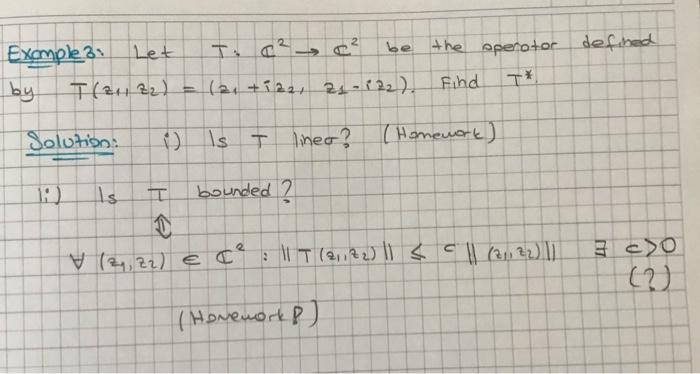 Example 3: Let T: ℂ² → ℂ² be the operator defined
by T(z₁, z₂) = (z₁ + iz₂, z₁ - iz₂). Find T*.
Solution: i) Is T linear? (Homework)
ii) Is T bounded?
⇕
∀ (z₁, z₂) ∈ ℂ² : ‖T(z₁, z₂)‖ ≤ c ‖(z₁, z₂)‖ ∃ c>0
(?)
(Homework!)